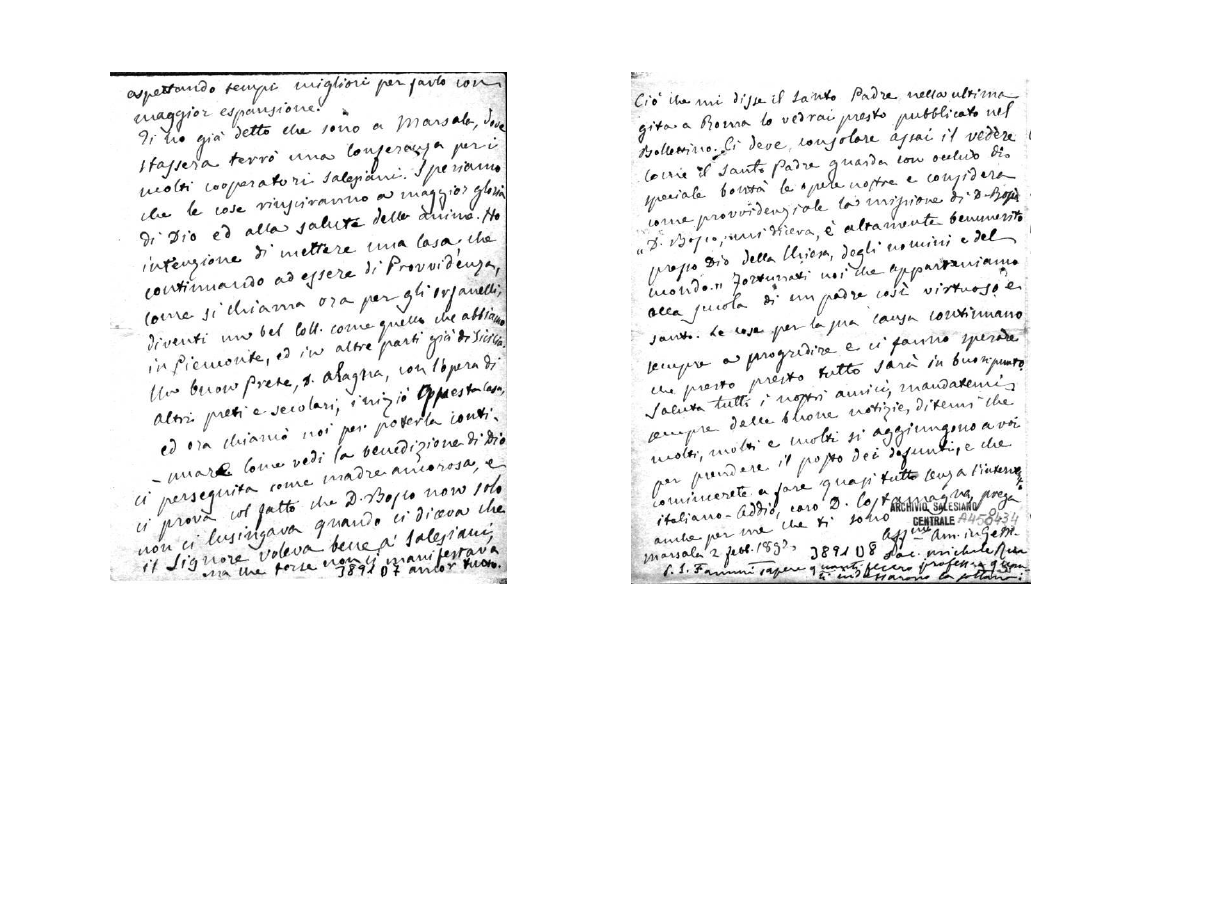 aspettando tempi migliori per farlo con
maggior espansione.
Ti ho già detto che sono a Marsala, dove
stassera terrò una conferenza per i
molti cooperatori Salesiani. Speriamo
che le cose riusciranno a maggior gloria
di Dio ed alla salute delle anime. Ho
intenzione di mettere una casa, che
continuando ad essere di Provvidenza,
come si chiama ora per gli orfanelli,
diventi un bel Coll. come quello che abbiamo
in Piemonte, ed in altre parti già di Sicilia.
Un buon Prete, s. Alagna, con l'opera di
altri preti e secolari, iniziò questa casa,
ed ora chiamò noi per poterla conti-
-nuare Come vedi la benedizione di Dio
ci perseguita come madre amorosa, e
ci prova col fatto che D. Bosco non solo
non ci lusingava quando ci diceva che
il Signore voleva bene a' Salesiani,
ma che forse non ci manifestava
3891 07 ancor tutto.
Ciò che mi disse il Santo Padre nella ultima
gita a Roma lo vedrai presto pubblicato nel
Bollettino. Ci deve consolare assai il vedere
come il Santo Padre guarda con occhio di
speciale bontà le opere nostre e considera
come provvidenziale la missione di D. Bosco
"D. Bosco, mi diceva, è altamente benemerito
presso Dio della Chiesa, degli uomini e del
mondo." Fortunati noi che apparteniamo
alla scuola di un padre così virtuoso e
santo. Le cose per la sua causa continuano
sempre a progredire e ci fanno sperare
che presto presto tutto sarà in buon punto
Saluta tutti i nostri amici, mandatemi
sempre delle buone notizie, ditemi che
molti, molti e molti si aggiungono a voi
per prendere il posto dei defunti, e che
comincerete a fare quasi tutto senza l'intervento
italiano. Addio, caro D. Costamagna, prega
anche per me che ti sono
ARCHIVIO SALESIANO
CENTRALE A458434
Aff.mo Am. in G. e M.
Marsala 2 febb. 1892. 3891 08 Sac. Michele Rua
P.S. Fammi sapere quanti fecero professione